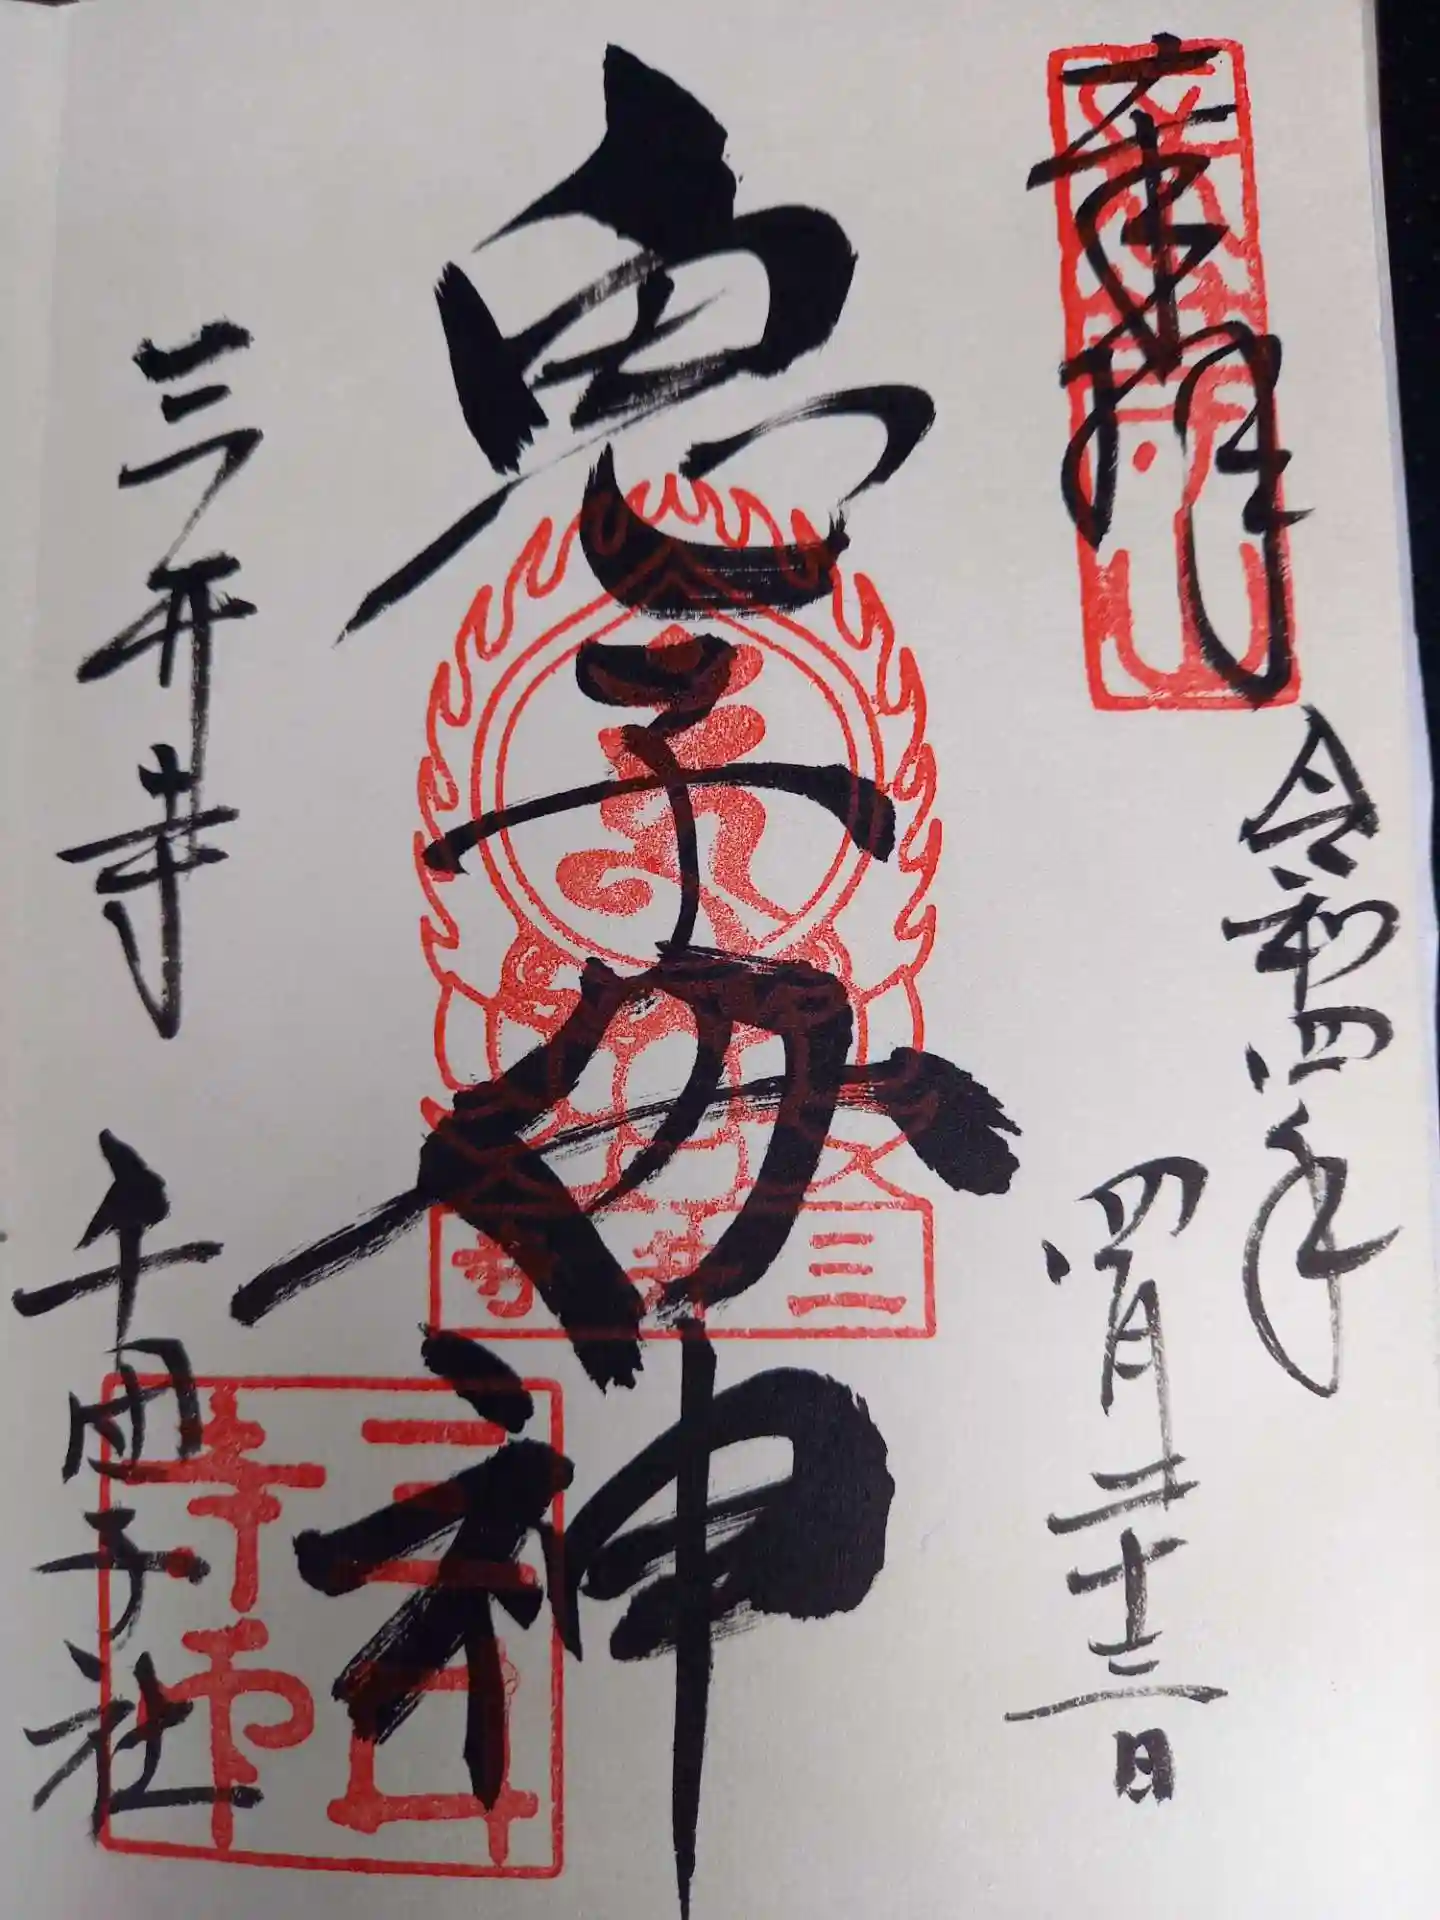 奉拝
令和四年
四月二十三日
鬼子母神
三井寺
三井寺 千団子社